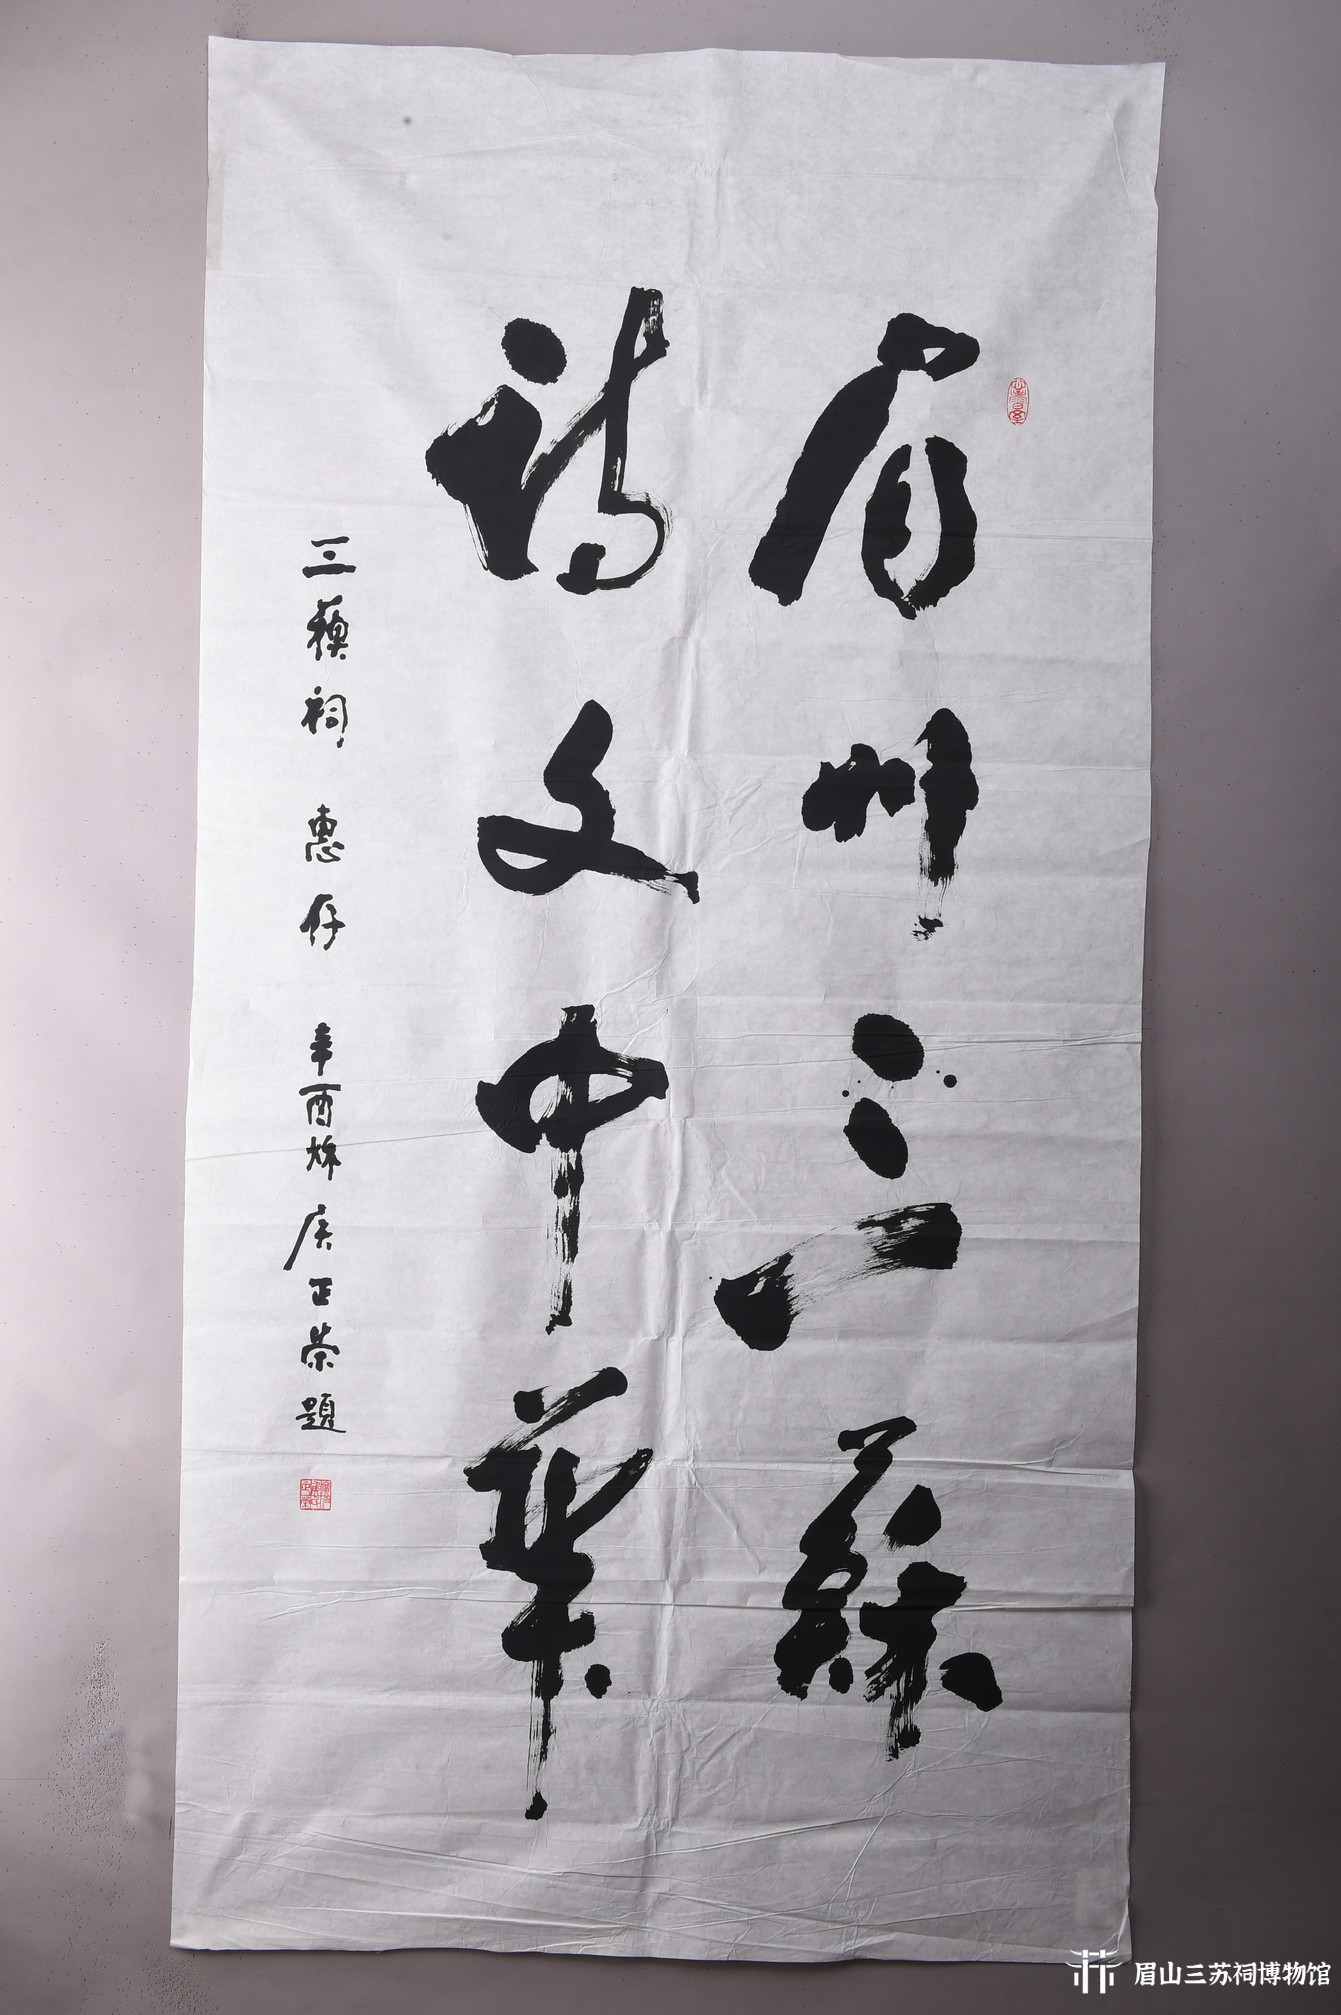 眉州三蘇
詩文中華
三蘇祠 惠存 辛酉秋 侯正榮題
眉山三苏祠博物馆